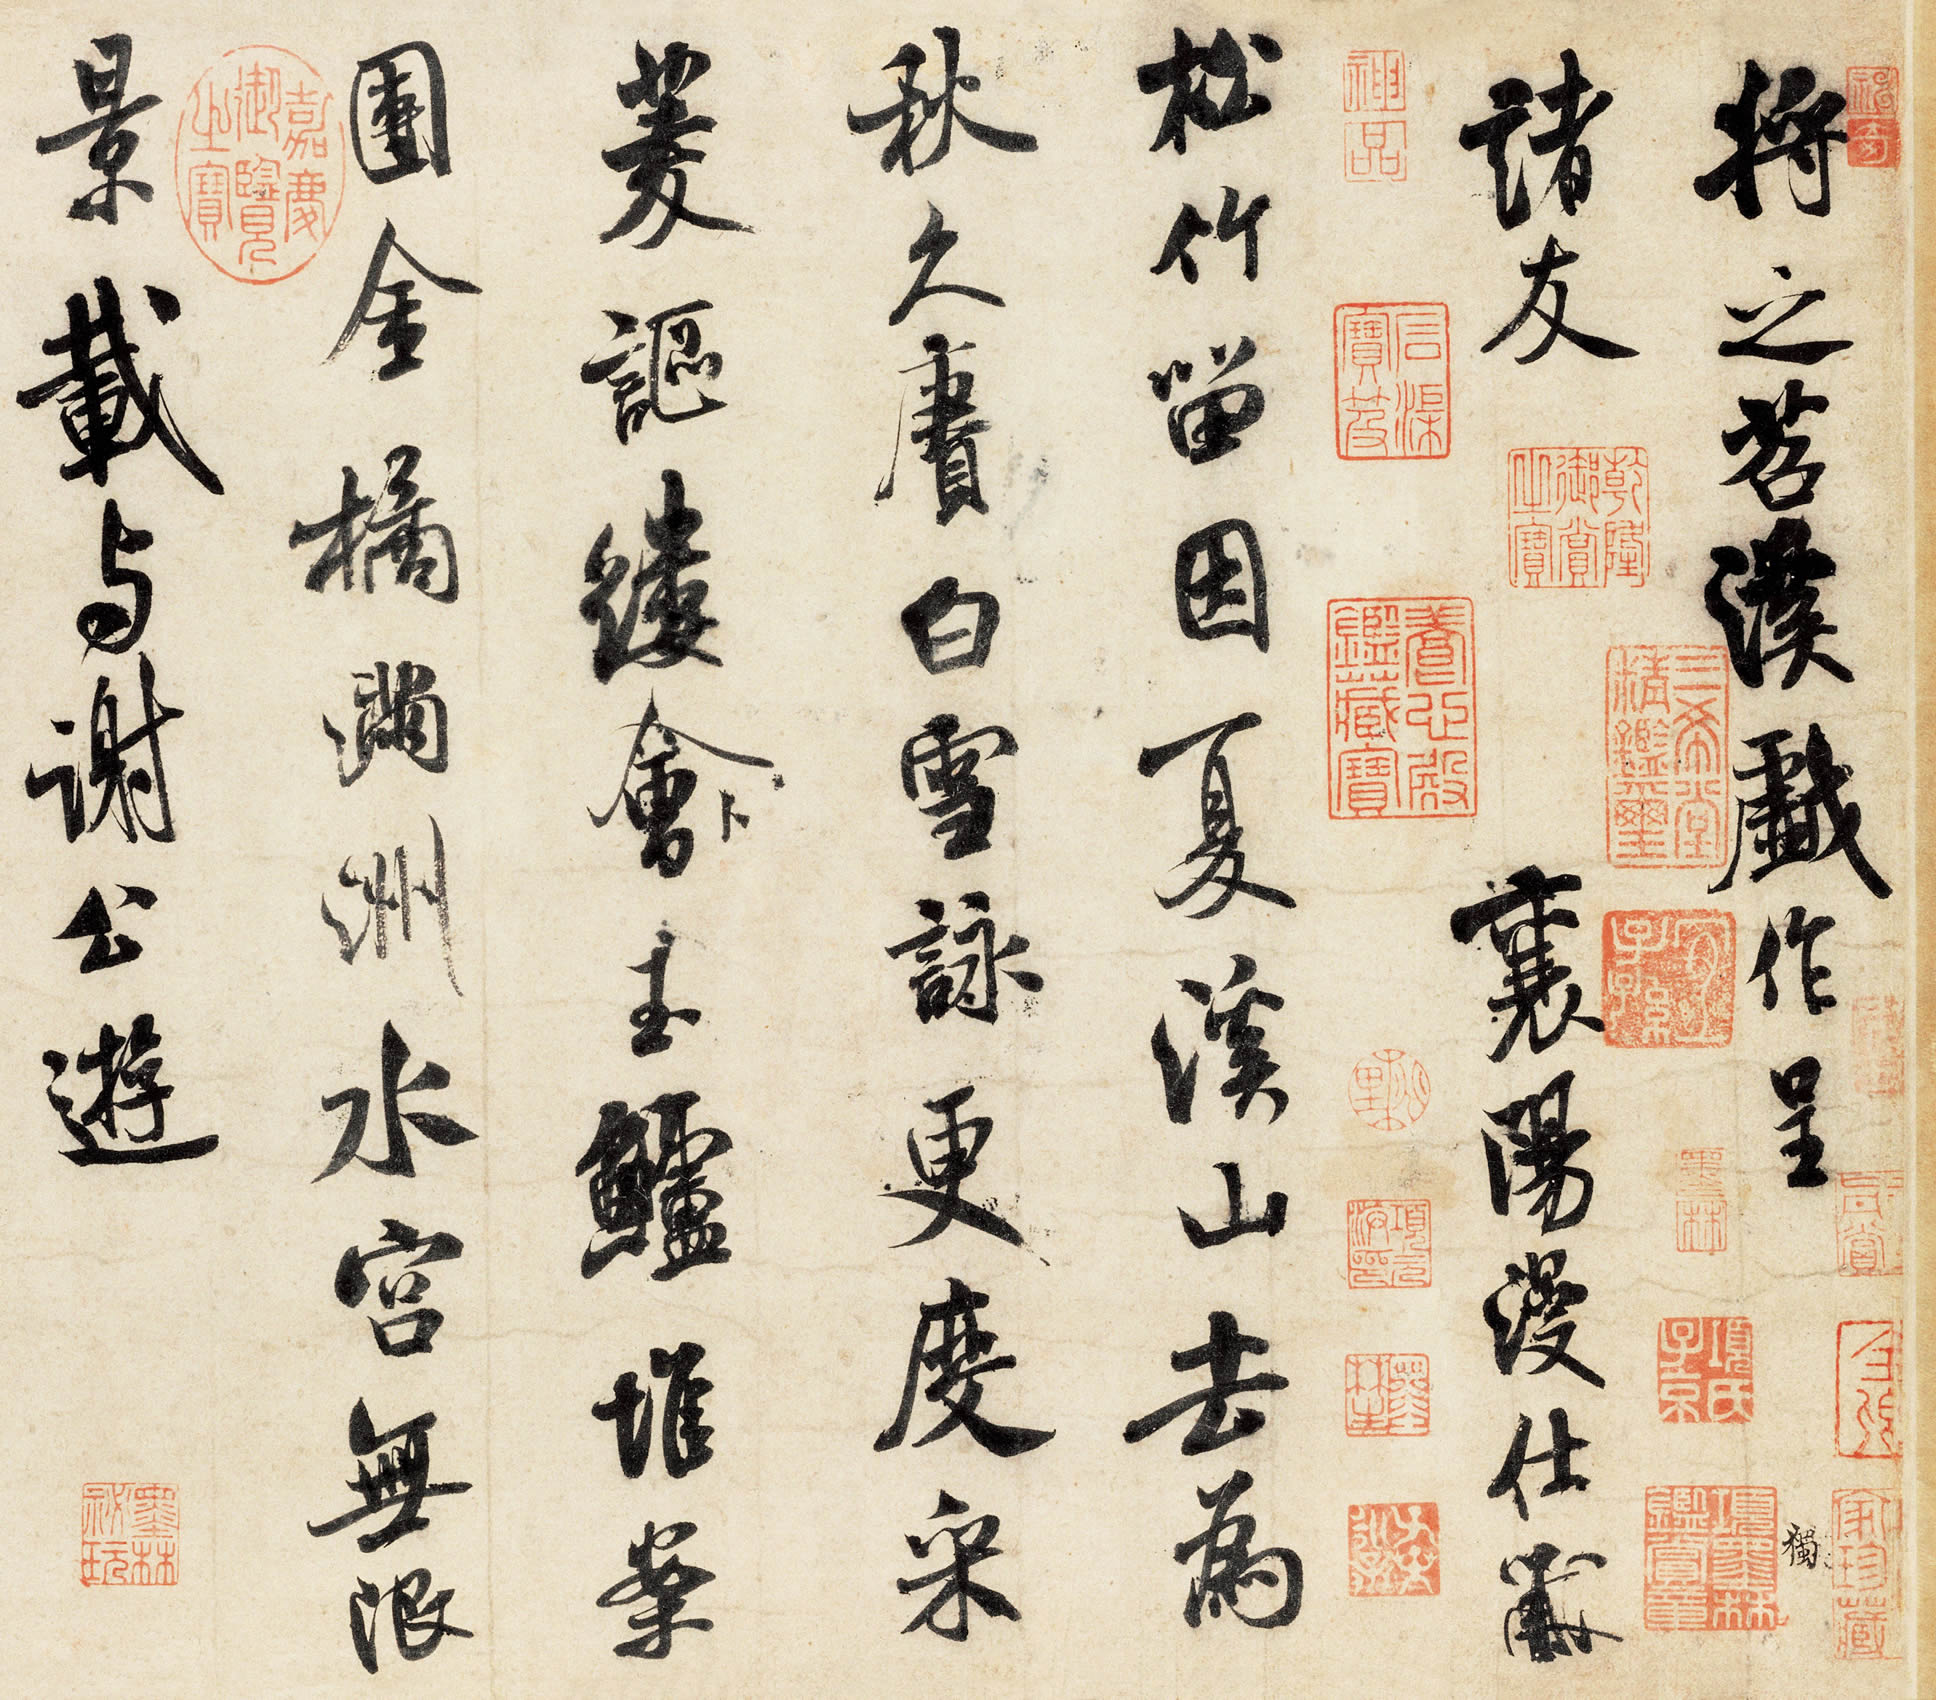 將之苕溪戲作呈
諸友
襄陽漫仕黻
松竹留因夏溪山去為
秋久賡白雪詠更度采
菱謳縷會玉鱸堆案
團金橘滿洲水宮無限
景載与謝公遊
獨
神品
石渠寶笈
乾隆御賞之寶
養心殿鑑藏寶
三希堂精鑑璽
嘉慶御覽之寶
墨林
項元汴印
墨林
項氏子京
項墨林鑑賞章
家珍藏
墨林秘玩